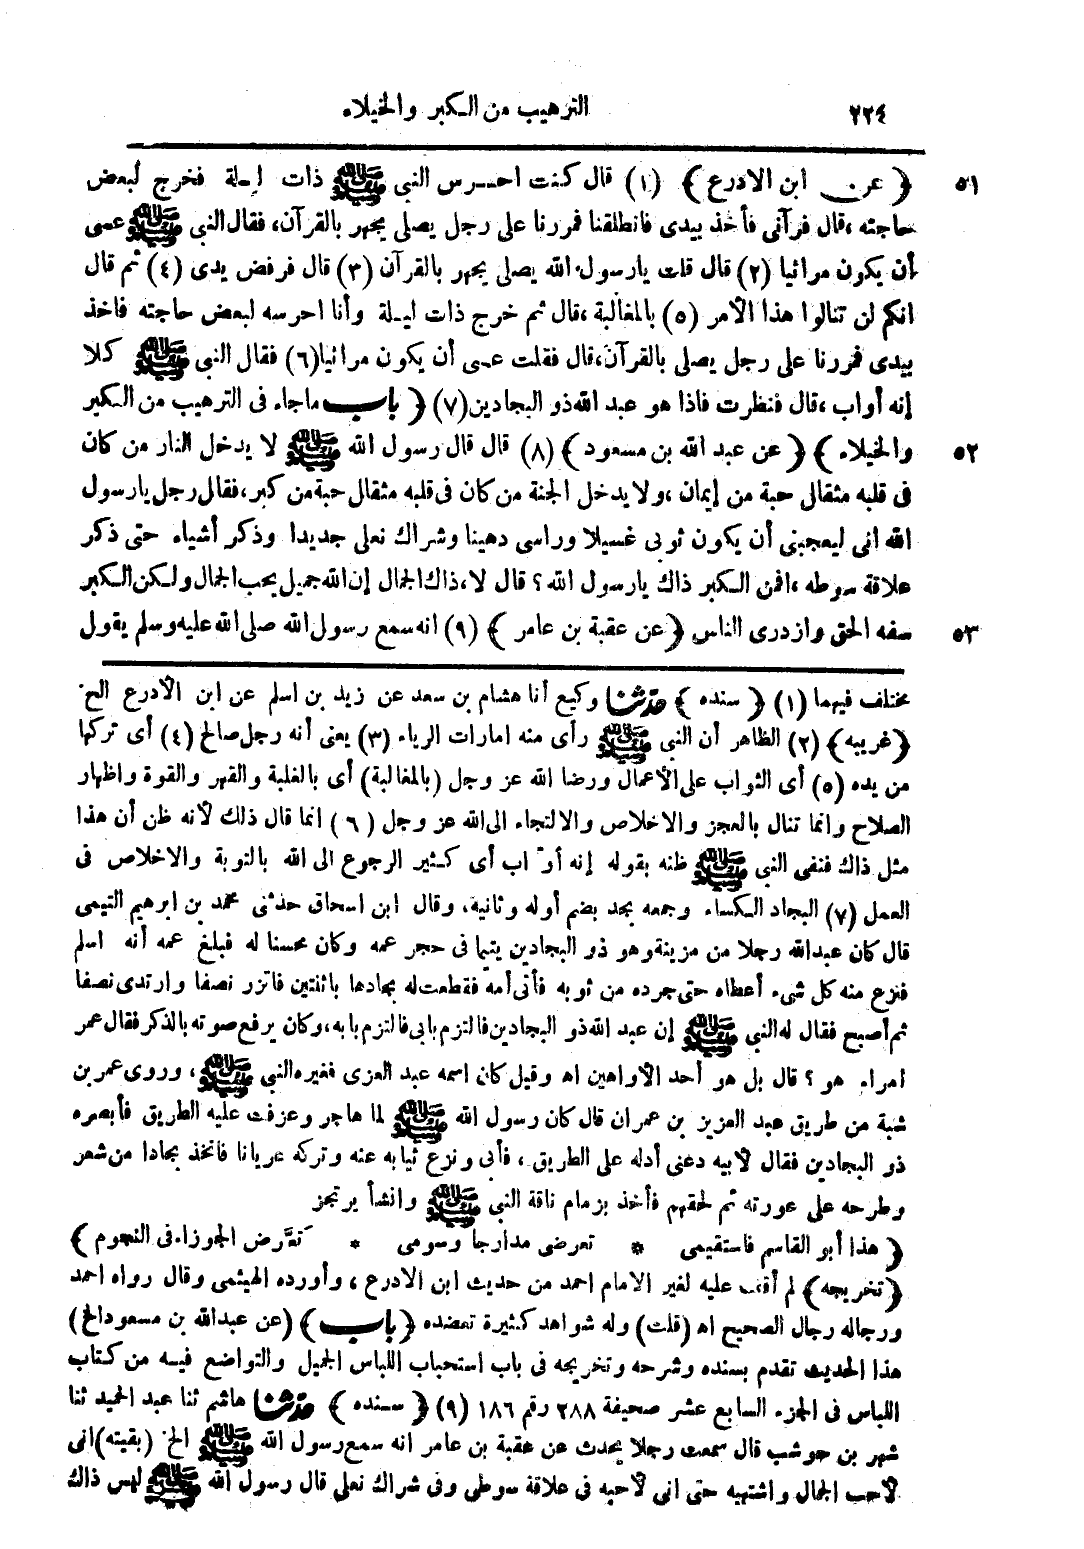 ٢٢٤ الترهيب من الكبر والخيلاء
٥١ ﴿ عن ابن الادرع ﴾ (١) قال كنت احرس النبي ﷺ ذات ليلة فخرج لبعض
حاجته ،قال فرآني فأخذ بيدى فانطلقنا فمررنا على رجل يصلى يجهر بالقرآن، فقال النبي ﷺ عسى
أن يكون مرائيا (٢) قال قلت يارسول الله يصلى يجهر بالقرآن (٣) قال فرفض يدى (٤) ثم قال
انكم لن تنالوا هذا الأمر (٥) بالمغالبة ،قال ثم خرج ذات ليلة وأنا احرسه لبعض حاجته فاخذ
بيدى فمررنا على رجل يصلى بالقرآن،قال فقلت عسى أن يكون مرائيا(٦) فقال النبي ﷺ كلا
إنه أواب ،قال فنظرت فاذا هو عبد الله ذو البجادين(٧) ﴿ باب ماجاء فى الترهيب من الكبر
٥٢ والخيلاء ﴾ ﴿ عن عبد الله بن مسعود ﴾ (٨) قال قال رسول الله ﷺ لا يدخل النار من كان
فى قلبه مثقال حبة من إيمان ،ولا يدخل الجنة من كان فى قلبه مثقال حبة من كبر،فقال رجل يارسول
الله انى ليعجبنى أن يكون ثوبى غسيلا وراسى دهينا وشراك نعلى جديدا وذكر أشياء حتى ذكر
علاقة سوطه ،افمن الكبر ذاك يارسول الله ؟ قال لا،ذاك الجمال إن الله جميل يحب الجمال ولكن الكبر
٥٣ سفه الحق وازدرى الناس ﴿ عن عقبة بن عامر ﴾ (٩) انه سمع رسول الله صلى الله عليه وسلم يقول
مختلف فيهما (١) ﴿ سنده ﴾ حدّثنا وكيع أنا هشام بن سعد عن زيد بن اسلم عن ابن الأدرع الخ
﴿غريبه﴾ (٢) الظاهر أن النبي ﷺ رأى منه امارات الرياء (٣) يعنى أنه رجل صالح (٤) أى تركها
من يده (٥) أى الثواب على الأعمال ورضا الله عز وجل (بالمغالبة) أى بالغلبة والقهر والقوة واظهار
الصلاح وانما تنال بالعجز والاخلاص والالتجاء الى الله عز وجل (٦) انما قال ذلك لأنه ظن أن هذا
مثل ذاك فنفى النبي ﷺ ظنه بقوله إنه أواب أى كثير الرجوع الى الله بالتوبة والاخلاص فى
العمل (٧) البجاد الكساء وجمعه بجد بضم أوله وثانية، وقال ابن اسحاق حدثنى محمد بن ابرهيم التيمى
قال كان عبدالله رجلا من مزينة وهو ذو البجادين يتيما فى حجر عمه وكان محسنا له فبلغ عمه أنه اسلم
فنزع منه كل شىء أعطاه حتى جرده من ثوبه فأتى أمه فقطعت له بجادها باثنتين فاتزر نصفا وارتدى نصفا
ثم أصبح فقال له النبي ﷺ إن عبد الله ذو البجادين فالتزم بابى فالتزم بابه،وكان يرفع صوته بالذكر فقال عمر
امراء هو ؟ قال بل هو أحد الأواهين اه وقيل كان اسمه عبد العزى فغيره النبي ﷺ ، وروى عمر بن
شبة من طريق عبد العزيز بن عمران قال كان رسول الله ﷺ لما هاجر وعزفت عليه الطريق فأبصره
ذو البجادين فقال لأبيه دعنى أدله على الطريق ، فأبى ونزع ثيابه عنه وتركه عريانا فاتخذ بجادا من شعر
وطرحه على عورته ثم لحقهم فأخذ بزمام ناقة النبي ﷺ وانشأ يرتجز
﴿ هذا أبو القاسم فاستقيمى * تعرضى مدارجا وسومى * تعرّض الجوزاء فى النجوم ﴾
﴿تخريجه﴾ لم أقف عليه لغير الامام احمد من حديث ابن الادرع ، وأورده الهيثمى وقال رواه احمد
ورجاله رجال الصحيح اه (قلت) وله شواهد كثيرة تعضده ﴿ باب ﴾ (عن عبدالله بن مسعود الخ)
هذا الحديث تقدم بسنده وشرحه وتخريجه فى باب استحباب اللباس الجميل والتواضع فيه من كتاب
اللباس فى الجزء السابع عشر صحيفة ٢٨٨ رقم ١٨٦ (٩) ﴿ سنده ﴾ حدّثنا هاشم ثنا عبد الحميد ثنا
شهر بن حوشب قال سمعت رجلا يحدث عن عقبة بن عامر انه سمع رسول الله ﷺ الخ (بقيته) انى
لأحب الجمال واشتهيه حتى انى لأحبه فى علاقة سوطى وفى شراك نعلى قال رسول الله ﷺ ليس ذاك